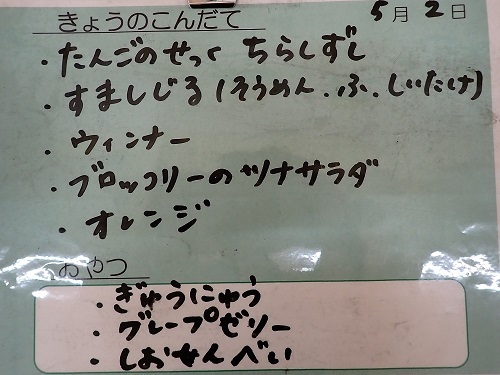 きょうのこんだて 5月2日
・たんごのせっく ちらしずし
・すましじる(そうめん.ふ.しいたけ)
・ウィンナー
・ブロッコリーのツナサラダ
・オレンジ
おやつ
・ぎゅうにゅう
・グレープゼリー
・しおせんべい